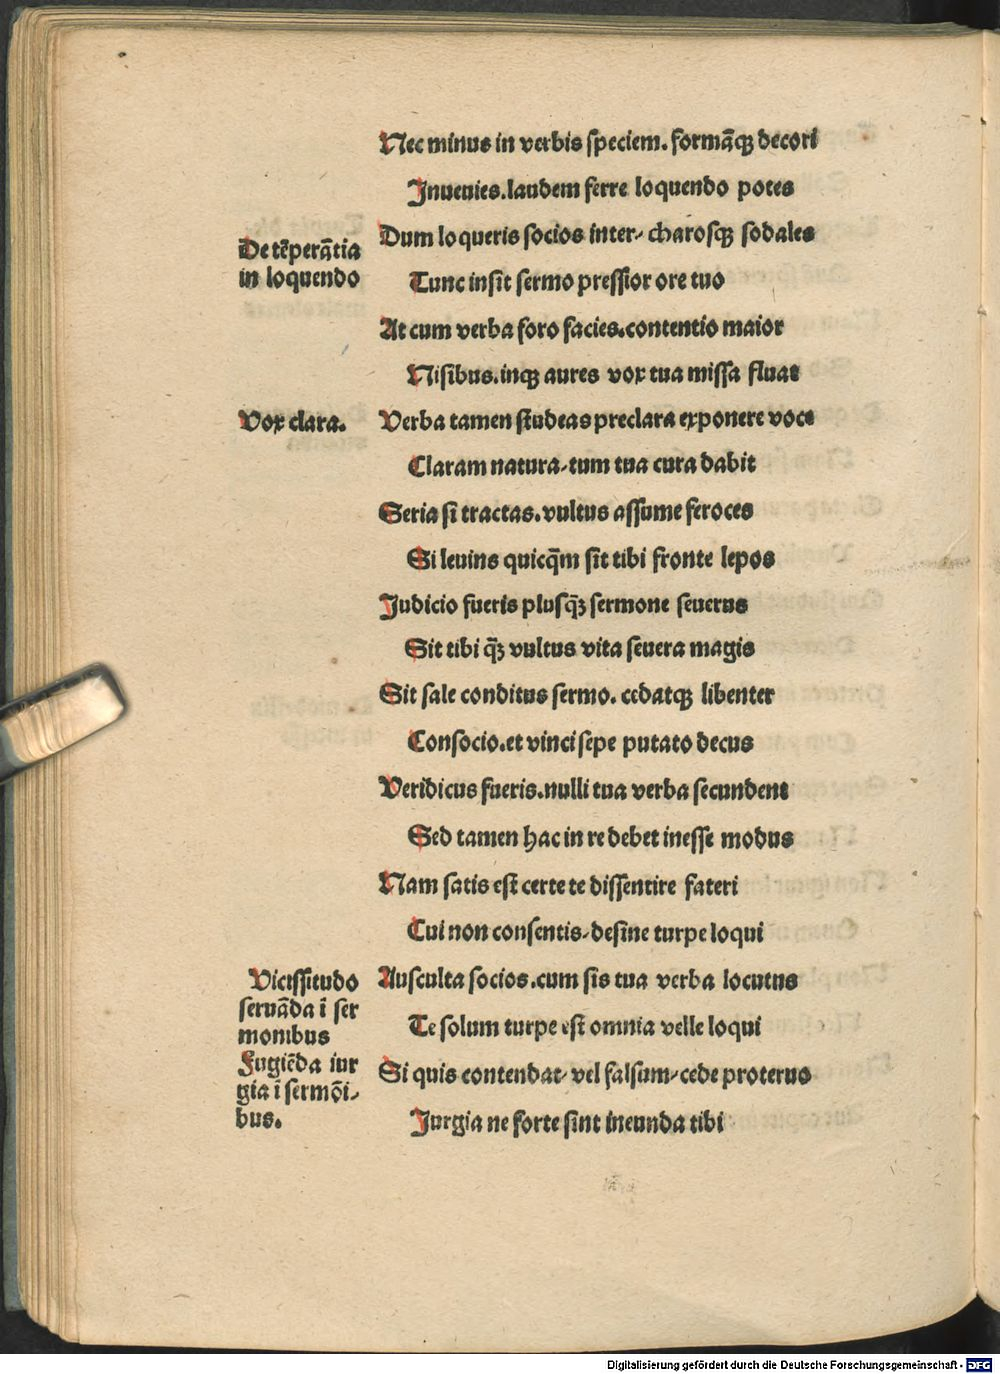 Nec minus in verbis speciem. formāqꝫ decori
Inuenies. laudem ferre loquendo potes
Dum loqueris socios inter/ charosqꝫ sodales
De tēperātia
in loquendo
Tunc insit sermo pressior ore tuo
At cum verba foro facies. contentio maior
Nisibus. inqꝫ aures vox tua missa fluat
Vox clara.
Verba tamen studeas preclara exponere voce
Claram natura/ tum tua cura dabit
Seria si tractas. vultus assume feroces
Si leuius quicq̄m sit tibi fronte lepos
Judicio fueris plusq̄ꝫ sermone seuerus
Sit tibi q̄ꝫ vultus vita seuera magis
Sit sale conditus sermo. cedatqꝫ libenter
Consocio. et vinci sepe putato decus
Veridicus fueris. nulli tua verba secundent
Sed tamen hac in re debet inesse modus
Nam satis est certe te dissentire fateri
Cui non consentis/ desine turpe loqui
Vicissitudo
seruāda ī ser
monibus
Ausculta socios. cum sis tua verba locutus
Te solum turpe est omnia velle loqui
Fugiēda iur
gia ī sermōi/
bus.
Si quis contendat/ vel falsum/ cede proteruo
Jurgia ne forte sint ineunda tibi
Digitalisierung gefördert durch die Deutsche Forschungsgemeinschaft - DFG